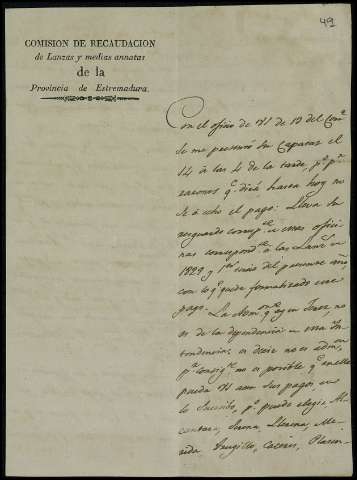 49
COMISION DE RECAUDACION
de Lanzas y medias annatas
de la
Provincia de Estremadura.
Con el oficio de V. de 13 del Corr.e
se me presentó su Capataz el
14 á las 4 de la tarde, p.r
razones q.e dirá hasta hoy no
se á echo el pago: Lleva su
resguardo
nas correspond.te á las Lanz.s
1829 y del presente año,
con lo q.e queda formalizado este
pago.
La Adm.on q.e ay en Jerez, no
es de la dependencia de esta In-
tendencia, es decir no es
p.r consig.te no es posible q.e en ella
pueda V. aser sus pagos, en
lo Sucesibo, p.r puede elegir Al-
cantara, Serena, Llerena, Me-
rida, Trugillo, Caceres, Plasen-